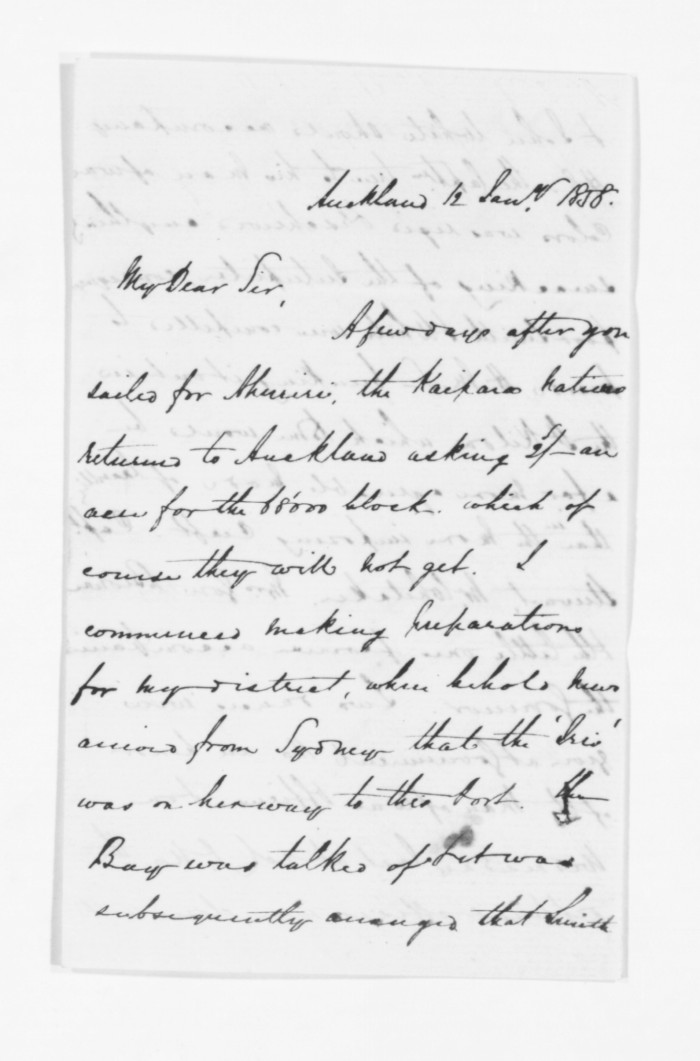 Auckland 12 Jany. 1858.
My Dear Sir,
A few days after you
sailed for Ahuriri, the Kaipara Natives
returned to Auckland asking 2/- an
acre for the 68000 block. which of
course they will not get. I
commenced making preparations
for my district, when behold news
arrived from Sydney that the 'Iris'
was on her way to this Port. The
Bay was talked of & it was
subsequently arranged that Smith